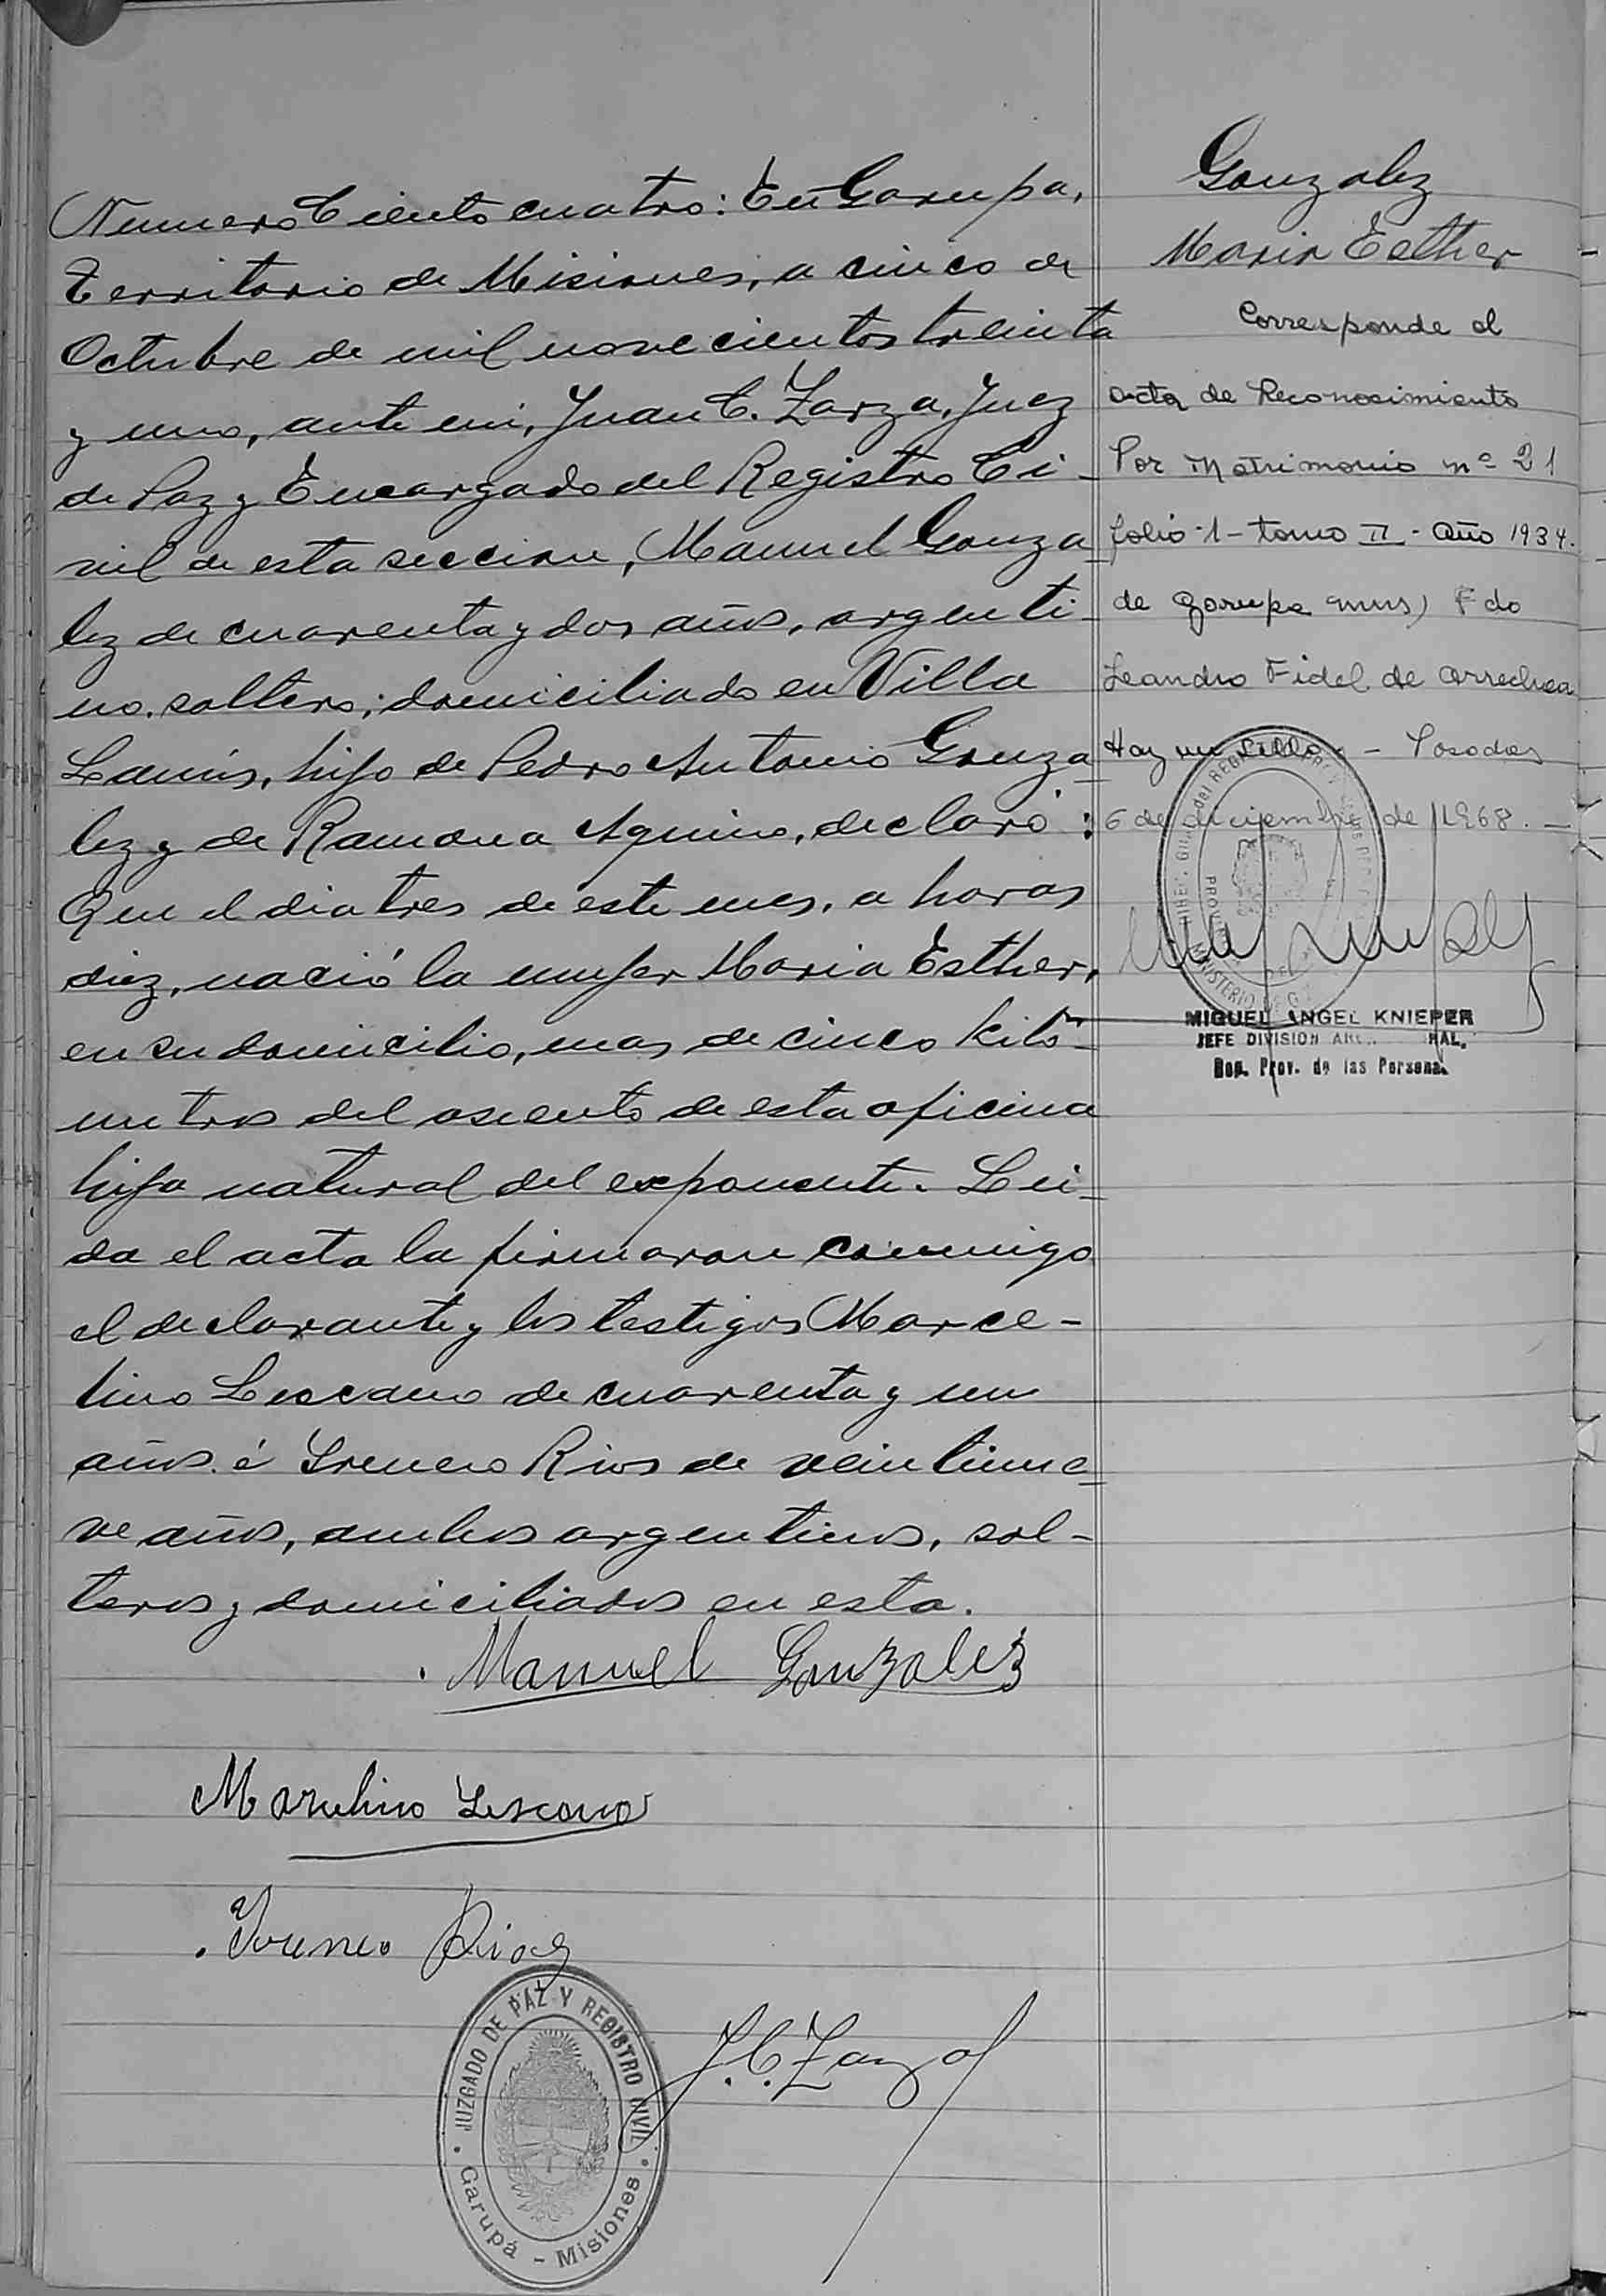 Numero Ciento cuatro: En Garupa,
Territorio de Misiones, a cinco de
Octubre de mil novecientos treinta
y uno, ante mi, Juan C. Zarza, Juez
de Paz y Encargado del Registro Ci-
vil de esta seccion, Manuel Gonza-
lez de cuarenta y dos años, argenti-
no, soltero, domiciliado en Villa
Lanús, hijo de Pedro Antonio Gonza-
lez y de Ramona Aquino, declaró:
Que el dia tres de este mes, a horas
diez, nació la mujer Maria Esther,
en su domicilio, mas de cinco kiló-
metros del asiento de esta oficina
hija natural del exponente. Lei-
da el acta la firmaron conmigo
el declarante y los testigos Marce-
lino Lescano de cuarenta y un
años é Ireneo Rios de veintinue-
ve años, ambos argentinos, sol-
teros y domiciliados en esta.
Manuel Gonzalez
Marcelino Lescano
Ireneo Rios
J. C. Zarza
JUZGADO DE PAZ Y REGISTRO CIVIL
Garupá - Misiones
Gonzalez
Maria Esther
Corresponde al
acta de Reconocimiento
Por Matrimonio nº 21
folio -1- tomo II - Año 1934.
de Garupa mns) Fdo
Leandro Fidel de Arrechea
Hay un sello - Posadas
6 de diciembre de 1968. -
MIGUEL ANGEL KNIEPER
JEFE DIVISION
Prov. de las Personas